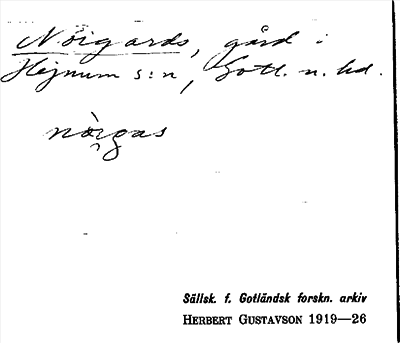 Nöigards, gård i
Hejnum s:n, Gotl. n. hd.
nòi̯gas
Sällsk. f. Gotländsk forskn. arkiv
HERBERT GUSTAVSON 1919—26